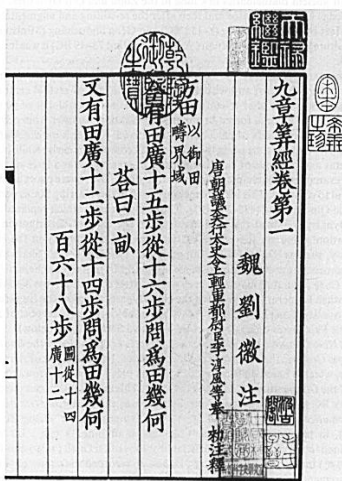 九章筭經卷第一
魏劉徽注
唐朝議大夫行太史令上輕車都尉臣李淳風等奉 勑注釋
方田以御田疇界域
今有田廣十五步從十六步問為田幾何
荅曰一畝
又有田廣十二步從十四步問為田幾何
百六十八步圖從十四廣十二